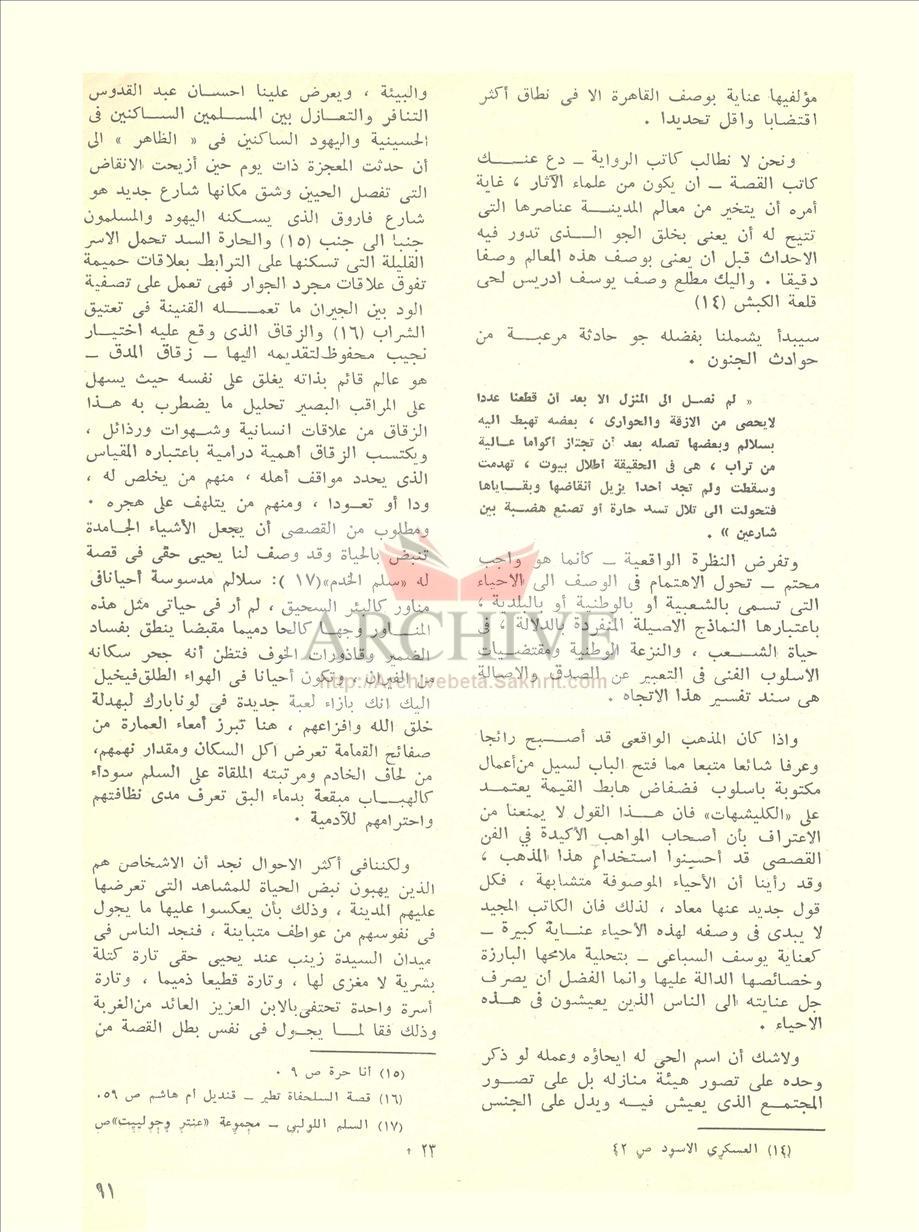 مؤلفيها عناية بوصف القاهرة الا فى نطاق أكثر
اقتضابا واقل تحديدا .
ونحن لا نطالب كاتب الرواية ــ دع عنــك
كاتب القصة ــ أن يكون من علماء الآثار ، غاية
أمره أن يتخير من معالم المدينــة عناصرها التى
تتيح له أن يعنى بخلق الجو الــذى تدور فيه
الاحداث قبل ان يعنى بوصف هذه المعالم وصفا
دقيقا . واليك مطلع وصف يوسف ادريس لحى
قلعة الكبش (١٤)
سيبدأ يشملنا بفضله جو حادثة مرعبــة من
حوادث الجنون .
« لم نصــل الى المنزل الا بعد أن قطعنا عددا
لايحصى من الازقة والحوارى ، بعضه تهبط اليه
بسلالم وبعضها تصله بعد أن تجتاز أكواما عــالية
من تراب ، هى فى الحقيقة أطلال بيوت ، تهدمت
وسقطت ولم تجد أحدا يزيل أنقاضها وبقــاياها
فتحولت الى تلال تسد حارة أو تصنع هضــبة بين
شارعين » .
وتفرض النظرة الواقعية ــ كأنما هو واجب
محتم ــ تحول الاهتمام فى الوصف الى الاحياء
التى تسمى بالشعبية أو بالوطنية أو بالبلدية ،
باعتبارها النماذج الاصيلة المنفردة بالدلالة ، فى
حياة الشــعب ، والنزعة الوطنية ومقتضــيات
الاسلوب الفنى فى التعبير عن الصدق والاصالة
هى سند تفسير هذا الاتجاه .
واذا كان المذهب الواقعى قد أصــبح رائجا
وعرفا شائعا متبعا مما فتح الباب لسيل من أعمال
مكتوبة باسلوب فضفاض هابط القيمة يعتمــد
على «الكليشهات» فان هــذا القول لا يمنعنا من
الاعتراف بأن أصحاب المواهب الأكيدة في الفن
القصصى قد أحسنوا استخدام هذا المذهب ،
وقد رأينا أن الأحياء الموصوفة متشابهة ، فكل
قول جديد عنها معاد ، لذلك فان الكاتب المجيد
لا يبدى فى وصفه لهذه الأحياء عنــاية كبيرة ــ
كعناية يوسف السباعى ــ بتحلية ملامحها البارزة
وخصائصها الدالة عليها وانما الفضل أن يصرف
جل عنايته الى الناس الذين يعيشون فى هــذه
الاحياء .
ولاشك أن اسم الحى له إيحاؤه وعمله لو ذكر
وحده على تصور هيئة منازله بل على تصــور
المجتمــع الذى يعيش فيــه ويدل على الجنس
(١٤) العسكري الاسود ص ٤٢
والبيئة ، ويعرض علينا احســان عبد القدوس
التنافر والتعــازل بين المسـلمين الســاكنين فى
الحسينية واليهود الساكنين فى « الظاهر » الى
أن حدثت المعجزة ذات يوم حين أزيحت الانقاض
التى تفصل الحيين وشق مكانها شارع جديد هو
شارع فاروق الذى يســكنه اليهود والمسلمون
جنبا الى جنب (١٥) والحارة السد تحمل الاسر
القليلة التى تسكنها على الترابط بعلاقات حميمة
تفوق علاقات مجرد الجوار فهى تعمل على تصفية
الود بين الجيران ما تعمــله القنينة فى تعتيق
الشراب (١٦) والزقاق الذى وقع عليه اختيــار
نجيب محفوظ لتقديمه اليها ــ زقاق المدق ــ
هو عالم قائم بذاته يغلق على نفسه حيث يسهل
على المراقب البصير تحليل ما يضطرب به هــذا
الزقاق من علاقات انسانية وشــهوات ورذائل ،
ويكتسب الزقاق أهمية درامية باعتباره المقياس
الذى يحدد مواقف أهله ، منهم من يخلص له ،
ودا أو تعــودا ، ومنهم من يتلهف على هجره .
ومطلوب من القصصى أن يجعل الأشياء الجامدة
تنبض بالحياة وقد وصف لنا يحيى حقى فى قصة
له «سلم الخدم»(١٧ ): سلالم مدسوسة أحيانافى
مناور كالبئر السحيق ، لم أر فى حياتى مثل هذه
المنــاور وجهــا كالحا دميما مقبضا ينطق بفساد
الضمير وقاذورات الخوف فتظن أنه جحر سكانه
من الفيران ، وتكون أحيانا فى الهواء الطلق فيخيل
اليك انك بازاء لعبة جديدة فى لونابارك لبهدلة
خلق الله وافزاعهم ، هنا تبرز أمعاء العمارة من
صفائح القمامة تعرض اكل السكان ومقدار نهمهم،
من لحاف الخادم ومرتبته الملقاة على السلم سوداء
كالهبــاب مبقعة بدماء البق تعرف مدى نظافتهم
واحترامهم للآدمية .
ولكننافى أكثر الاحوال نجد أن الاشخاص هم
الذين يهبون نبض الحياة للمشاهد التى تعرضها
عليهم المدينة ، وذلك بأن يعكسوا عليها ما يجول
فى نفوسهم من عواطف متباينة ، فنجد الناس فى
ميدان السيدة زينب عند يحيى حقى تارة كتلة
بشرية لا مغزى لها ، وتارة قطيعا ذميما ، وتارة
أسرة واحدة تحتفى بالابن العزيز العائد من الغربة
وذلك فقا لمــا يجــول فى نفس بطل القصة من
(١٥) أنا حرة ص ٩ .
(١٦) قصة السلحفاة تطير ــ قنديل أم هاشم ص ٥٩.
(١٧) السلم اللولبى ــ مجموعة «عنتر وجولييت»ص
٢٣ .
٩١
ARCHIVE
http://Archivebeta.Sakhrit.com